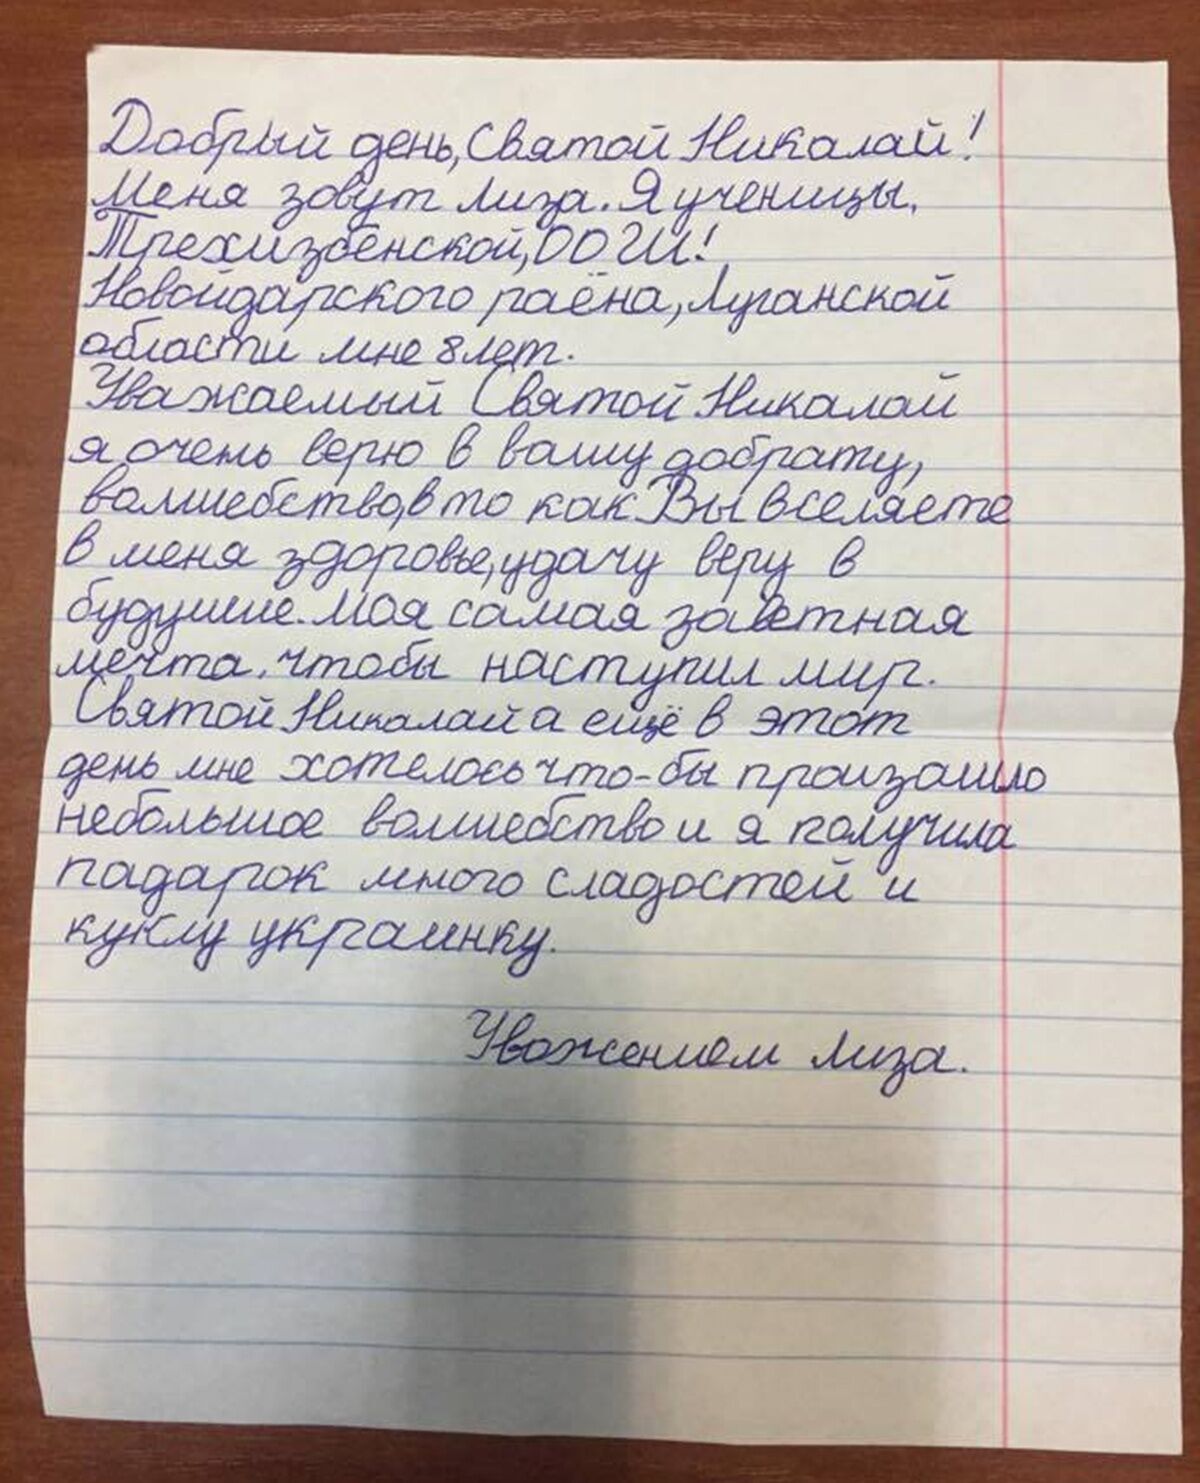 Добрый день, Святой Николай!
Меня зовут Лиза. Я ученицы,
Трехизбенской, ОО ГШ!
Новойдарского раёна, Луганской
области мне 8 лет.
Уважаемый Святой Николай
я очень верю в вашу добрату,
волшебство, в то как Вы вселяете
в меня здоровье, удачу веру в
будушие. Моя самая заветная
мечта, чтобы наступил мир.
Святой Николай а ещё в этот
день мне хотелось что-бы произашло
небольшое волшебство и я получила
падарок много сладостей и
куклу украинку.
Уважением Лиза.